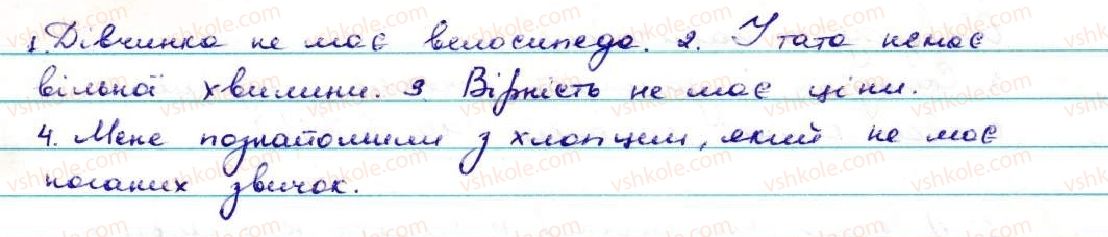 1. Дівчинка не має велосипеда. 2. У тата немає
вільної хвилини. 3. Вірність не має ціни.
4. Мене познайомили з хлопцем, який не має
поганих звичок.